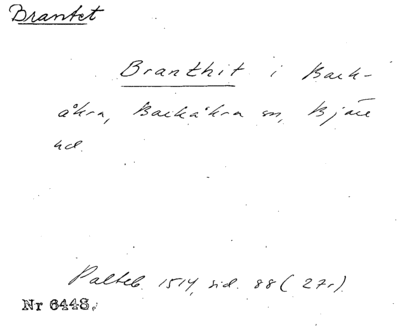 Brantet
Branthit i Back-
åkra, Backåkra sn, Bjäre
hd.
Palteb. 1514, sid. 88 (27r).
Nr 6448.